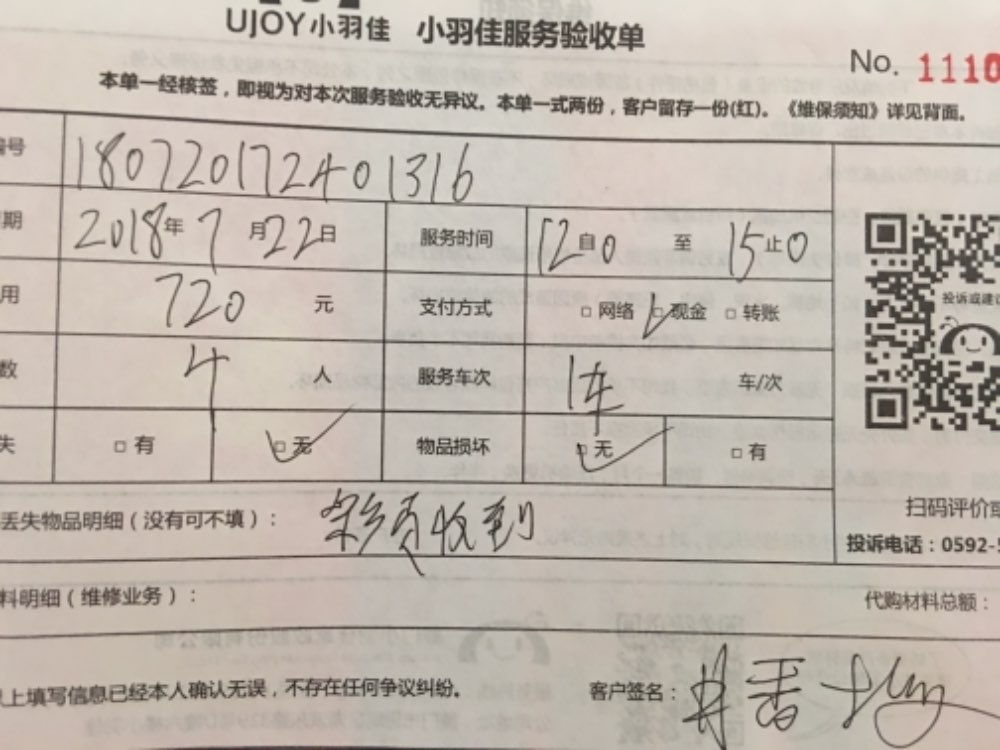 UJOY小羽佳 小羽佳服务验收单
No. 1110
本单一经核签，即视为对本次服务验收无异议。本单一式两份，客户留存一份(红)。《维保须知》详见背面。
编号 180720172401316
期 2018年7月22日 服务时间 12自0至15止0
用 720元 支付方式 □网络 □现金 □转账
投诉或建议
数 4人 服务车次 1车 车/次
失 □有 □无 物品损坏 □无 □有
扫码评价或
丢失物品明细（没有可不填）： 收到
投诉电话：0592-5
料明细（维修业务）： 代购材料总额：
上填写信息已经本人确认无误，不存在任何争议纠纷。 客户签名：